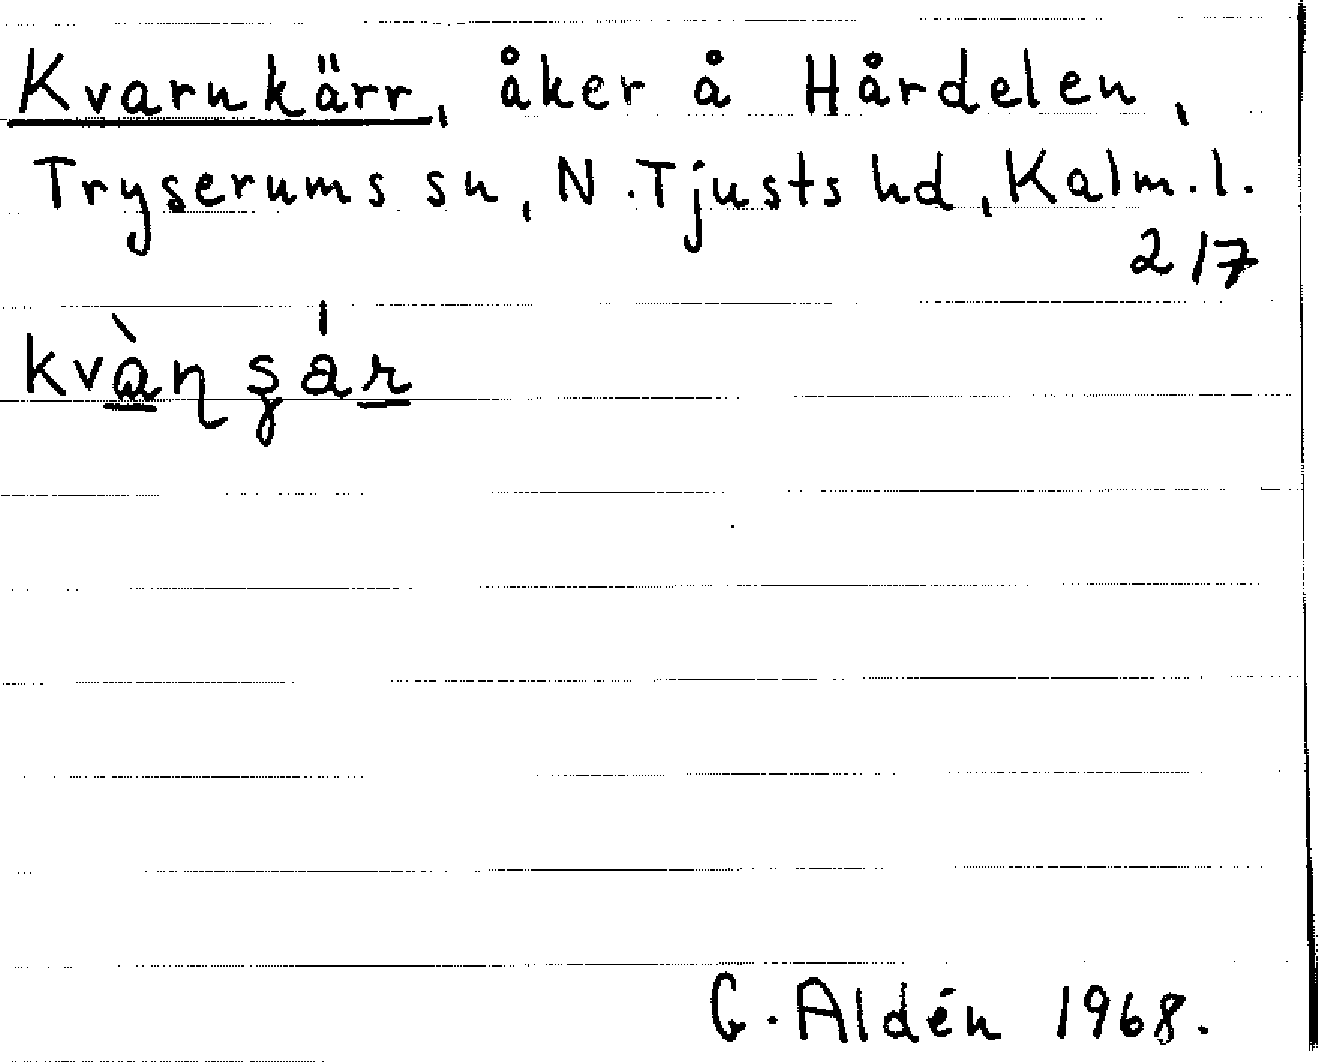 Kvarnkärr, åker å Hårdelen,
Tryserums sn, N. Tjusts hd, Kalm. l.
217
G. Aldén 1968.